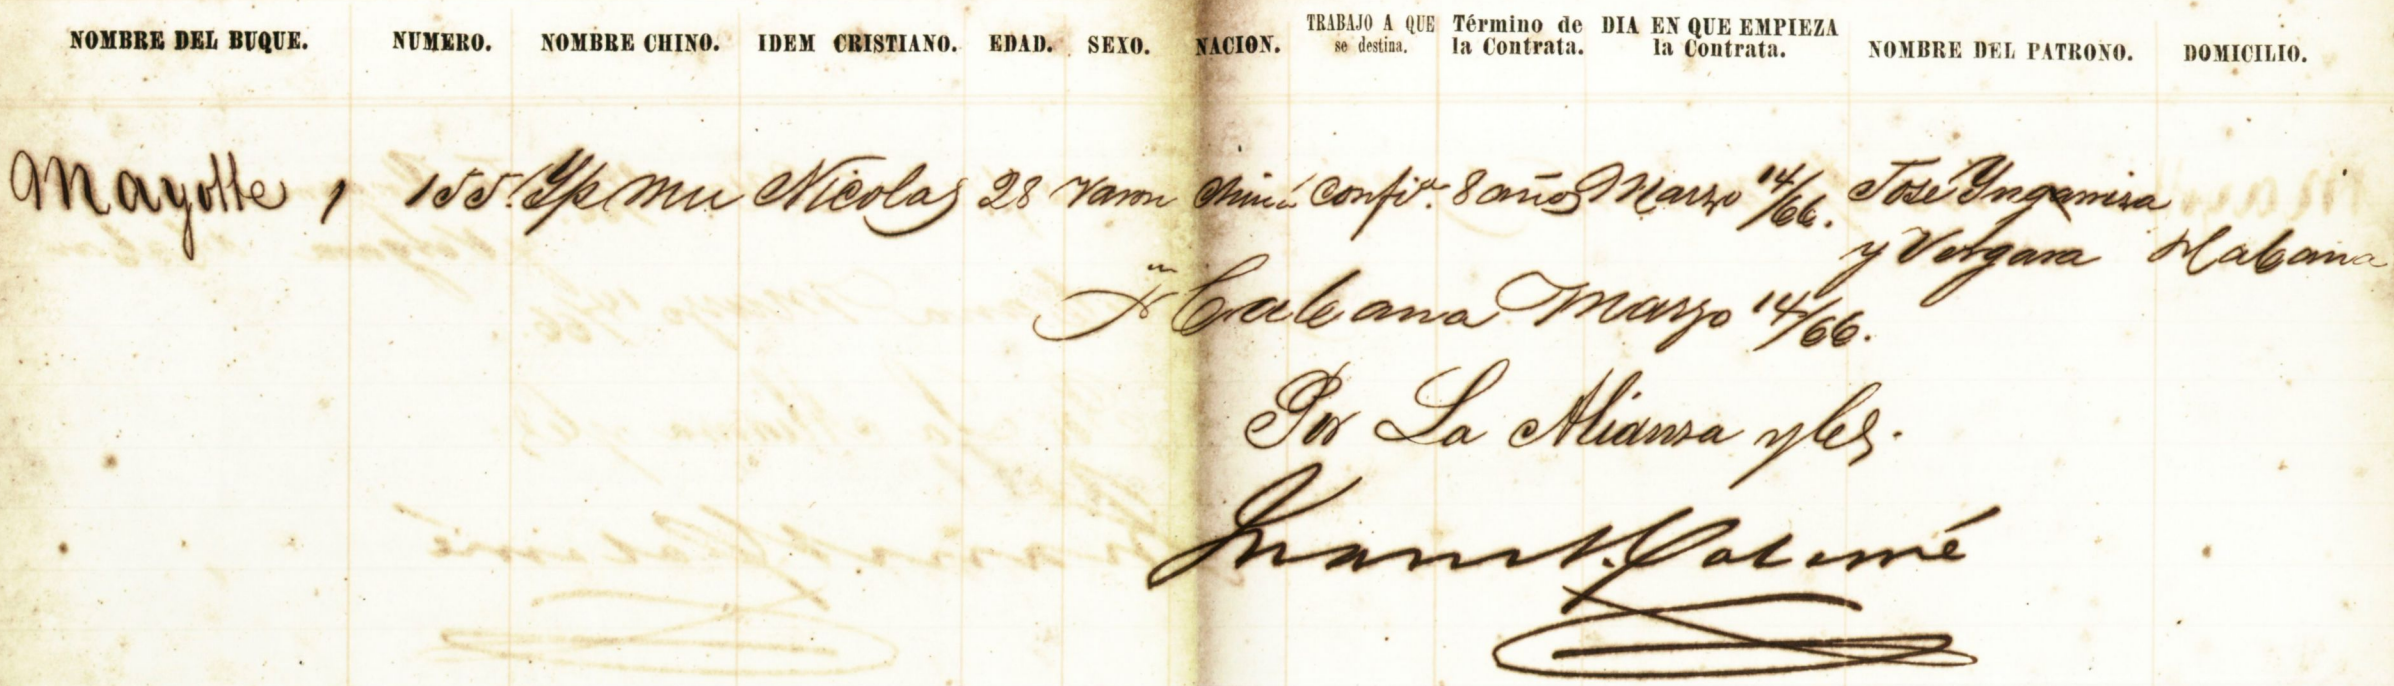 NOMBRE DEL BUQUE. NUMERO. NOMBRE CHINO. IDEM CRISTIANO. EDAD. SEXO. NACION. TRABAJO A QUE se destina. Término de la Contrata. DIA EN QUE EMPIEZA la Contrata. NOMBRE DEL PATRONO. DOMICILIO.
Mayotte 1 155. Yp Mu Nicolas 28 Varon China Confn. 8 años Marzo 14/66. José
y Vergara Habana
Cabana Marzo 14/66.
Por La Alianza y Ca.
Juan A. Colomé